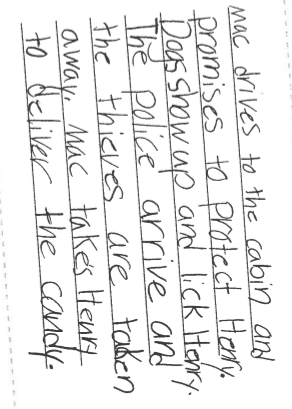 Mac drives to the cabin and
promises to protect Henry.
Dogs show up and lick Henry.
The police arrive and
the thieves are taken
away. Mac takes Henry
to deliver the candy.